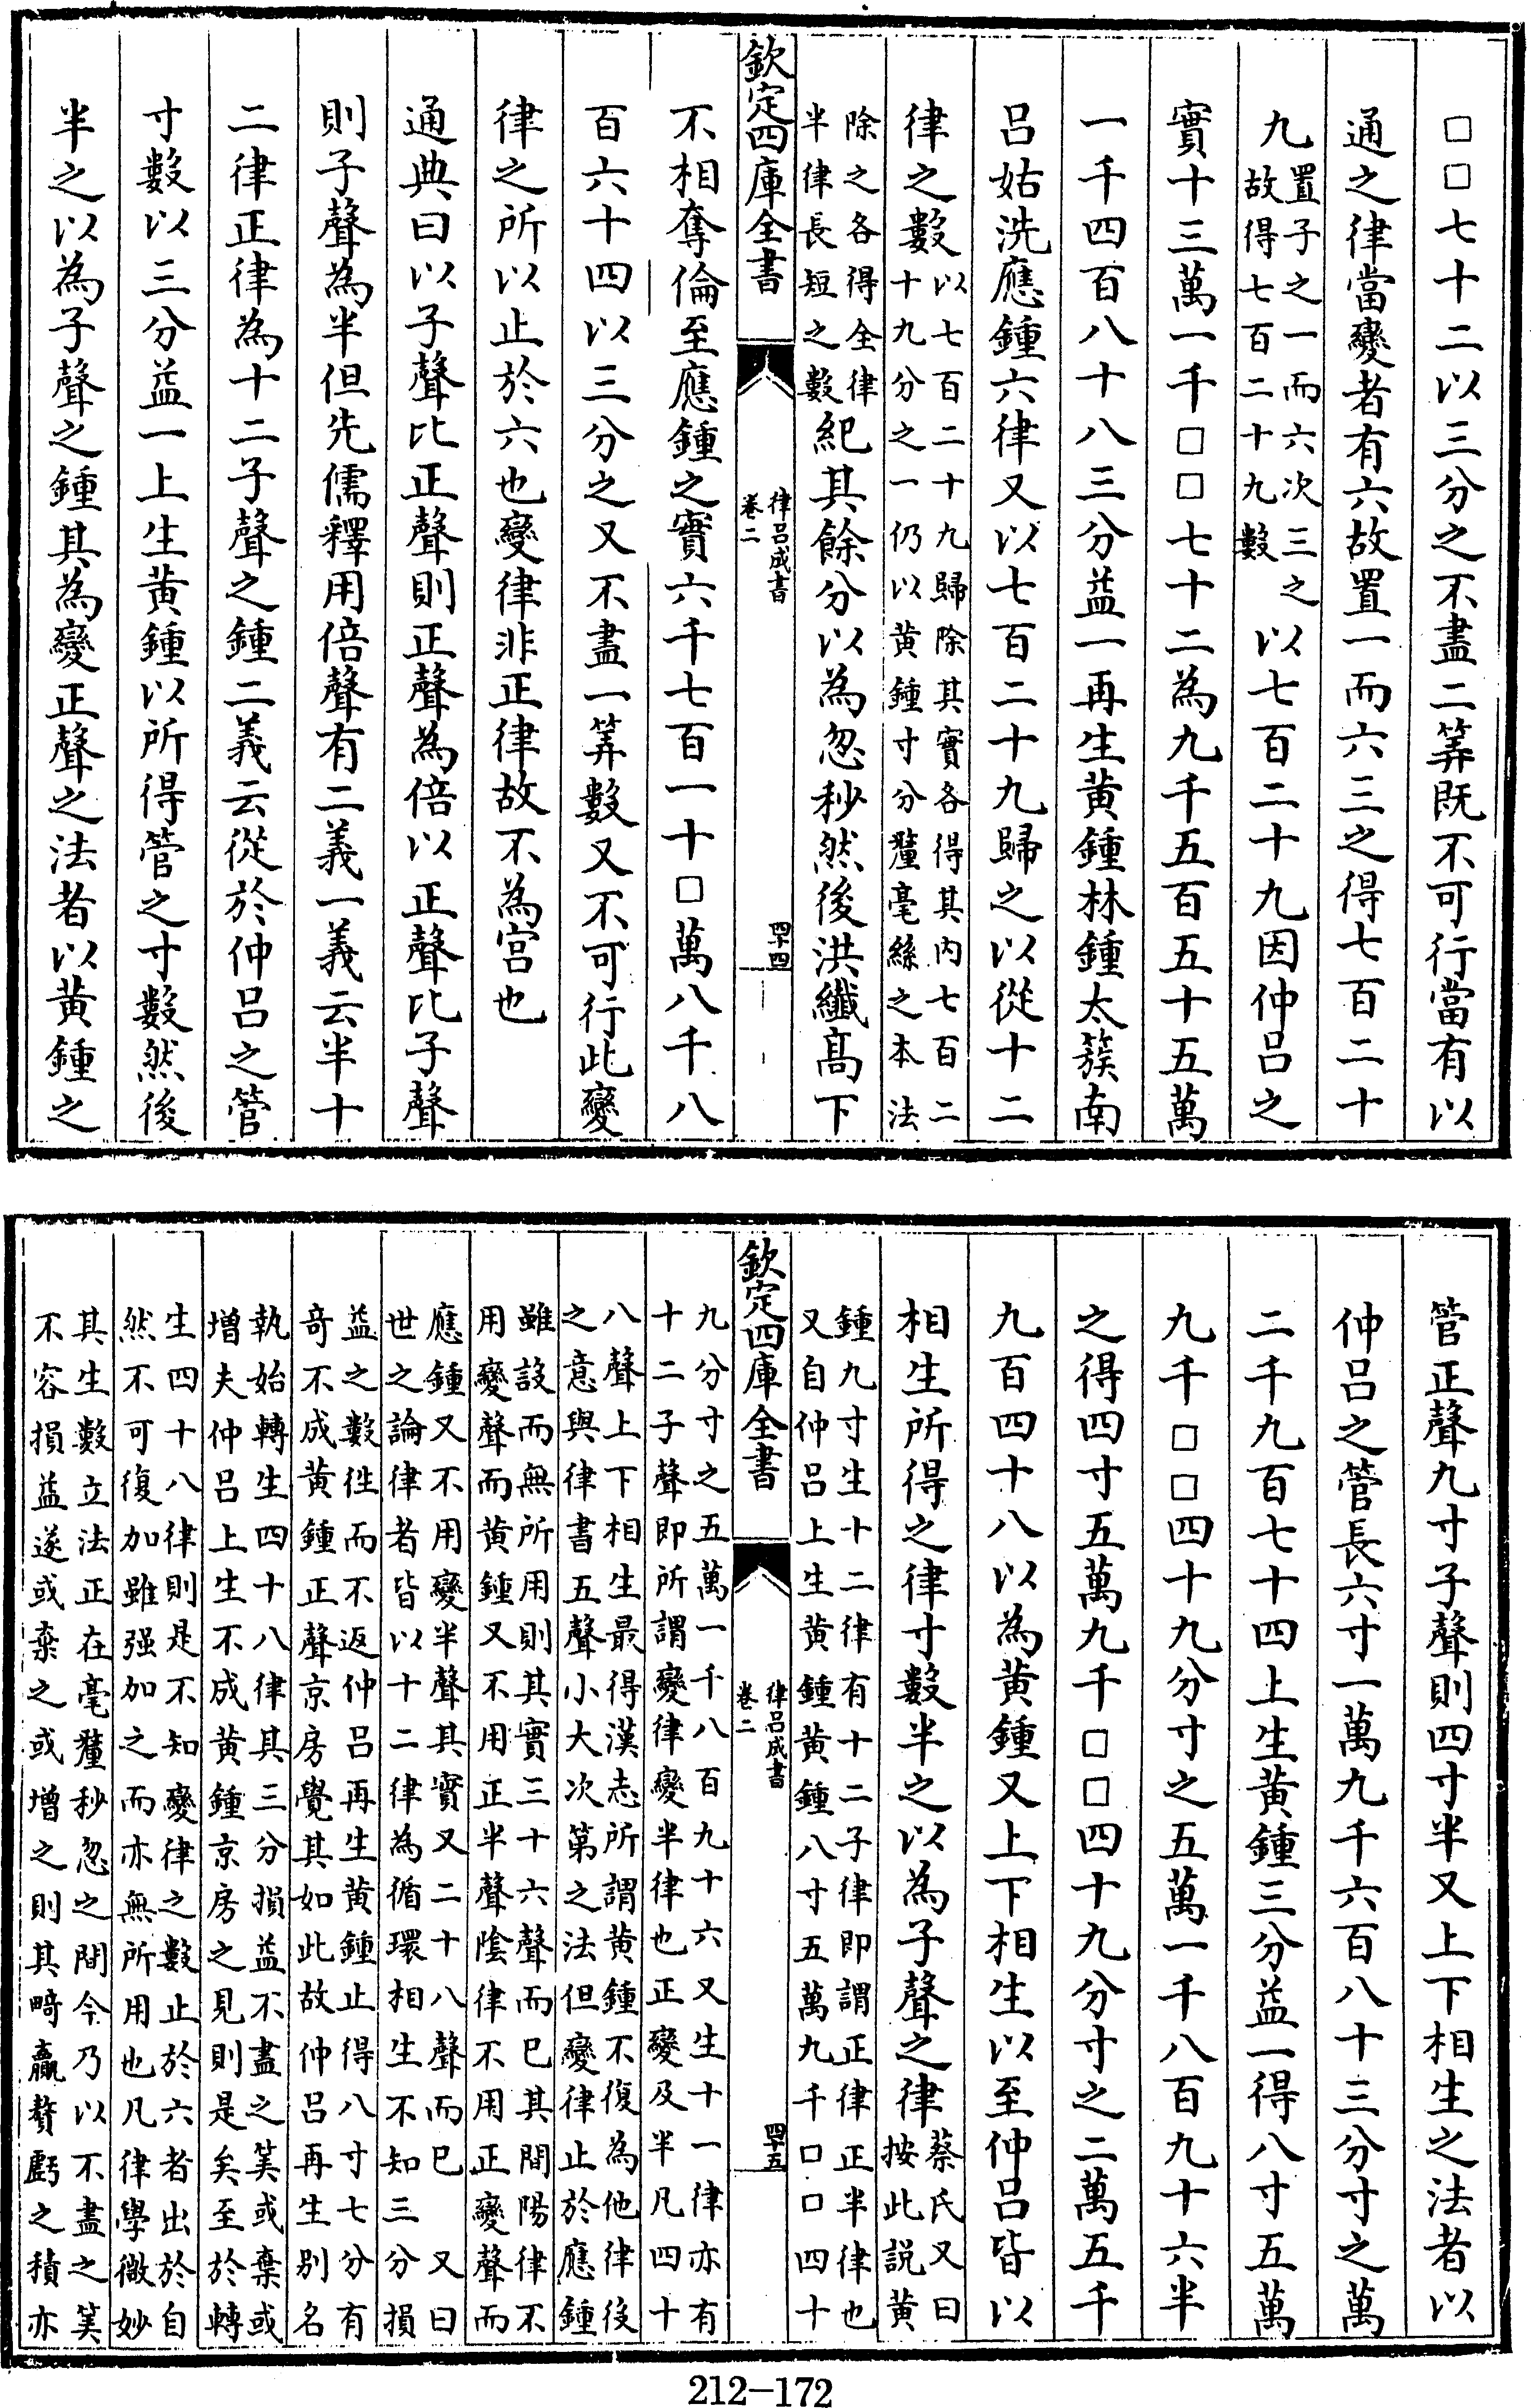 □□七十二以三分之不盡二筭既不可行當有以
通之律當變者有六故置一而六三之得七百二十
九置子之一而六次三之故得七百二十九數以七百二十九因仲吕之
實十三萬一千□□七十二為九千五百五十五萬
一千四百八十八三分益一再生黄鍾林鍾太簇南
吕姑洗應鍾六律又以七百二十九歸之以從十二
律之數以七百二十九歸除其實各得其内七百二十九分之一仍以黄鍾寸分釐毫絲之本法
除之各得全律半律長短之數紀其餘分以為忽秒然後洪纖髙下
欽定四庫全書
律吕成書
卷二
四十四
不相奪倫至應鍾之實六千七百一十□萬八千八
百六十四以三分之又不盡一筭數又不可行此變
律之所以止於六也變律非正律故不為宫也
通典曰以子聲比正聲則正聲為倍以正聲比子聲
則子聲為半但先儒釋用倍聲有二義一義云半十
二律正律為十二子聲之鍾二義云從於仲吕之管
寸數以三分益一上生黄鍾以所得管之寸數然後
半之以為子聲之鍾其為變正聲之法者以黄鍾之
管正聲九寸子聲則四寸半又上下相生之法者以
仲吕之管長六寸一萬九千六百八十三分寸之萬
二千九百七十四上生黄鍾三分益一得八寸五萬
九千□□四十九分寸之五萬一千八百九十六半
之得四寸五萬九千□□四十九分寸之二萬五千
九百四十八以為黄鍾又上下相生以至仲吕皆以
相生所得之律寸數半之以為子聲之律蔡氏又曰按此説黄
鍾九寸生十二律有十二子律即謂正律正半律也又自仲吕上生黄鍾黄鍾八寸五萬九千□□四十
欽定四庫全書
律吕成書
卷二
四十五
九分寸之五萬一千八百九十六又生十一律亦有十二子聲即所謂變律變半律也正變及半凡四十
八聲上下相生最得漢志所謂黄鍾不復為他律役之意與律書五聲小大次第之法但變律止於應鍾
雖設而無所用則其實三十六聲而已其間陽律不用變聲而黄鍾又不用正半聲陰律不用正變聲而
應鍾又不用變半聲其實又二十八聲而已又曰世之論律者皆以十二律為循環相生不知三分損
益之數徃而不返仲吕再生黄鍾止得八寸七分有奇不成黄鍾正聲京房覺其如此故仲吕再生别名
執始轉生四十八律其三分損益不盡之筭或棄或增夫仲吕上生不成黄鍾京房之見則是矣至於轉
生四十八律則是不知變律之數止於六者出於自然不可復加雖强加之而亦無所用也凡律學微妙
其生數立法正在毫釐秒忽之間今乃以不盡之筭不容損益遂或棄之或增之則其畸贏贅虧之積亦
212-172